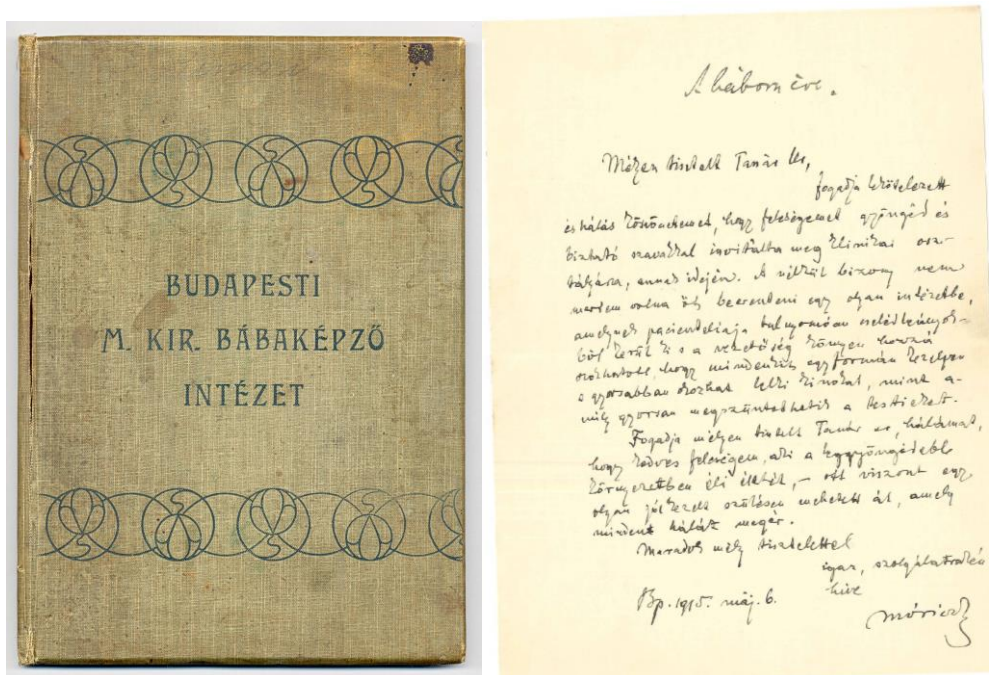 BUDAPESTI
M. KIR. BÁBAKÉPZŐ
INTÉZET
A háború éve.
Mélyen tisztelt Tanár Úr,
fogadja lekötelezett
és hálás köszönetemet, hogy feleségemet gyöngéd és
biztató szavakkal invitálta meg klinikai osz-
tályára, annak idején. A nélkül bizony nem
mertem volna őt beereszteni egy olyan intézetbe,
amelynek pacienteliája tulnyomóan cselédleányok-
ból kerül ki s a vezetőség könnyen hozzá
szokhatott, hogy mindenkit egyformán kezeljen
s gyorsabban okozhat lelki kinokat, mint a-
mily gyorsan megszüntetheti a testieket.
Fogadja mélyen tisztelt Tanár úr, hálámat,
hogy kedves feleségem, aki a leggyöngédebb
környezetben éli életét, – ott viszont egy
olyan jól kezelt szülésen mehetett át, amely
mindent hálát megér.
Maradok mély tisztelettel
igaz, szolgálatrakész
híve
Bp. 1915. máj. 6.
Móricz Z